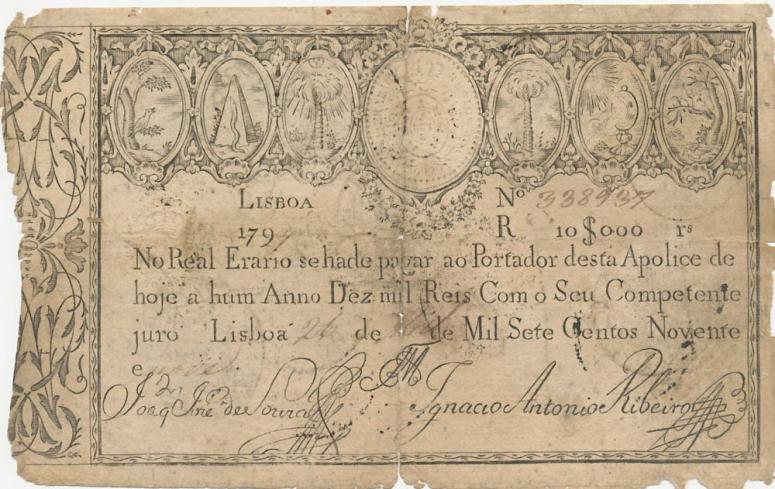 LISBOA
Nº 338937
179
R 10$000 rs
No Real Erario se hade pagar ao Portador desta Apolice de
hoje a hum Anno Dez mil Reis Com o Seu Competente
juro Lisboa 26 de de Mil Sete Centos Novente
e
Joaq Jné de Souza
Ignacio Antonio Ribeiro